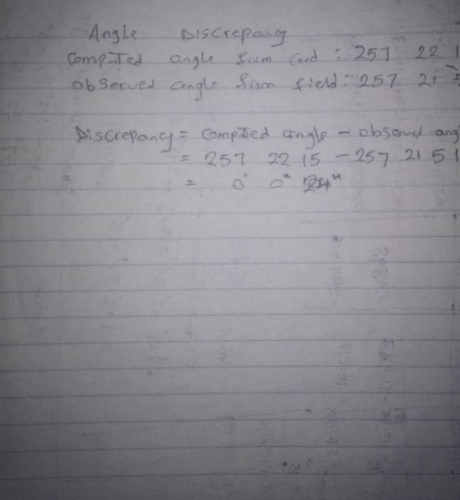 Angle Discrepancy
Computed angle from Cord : 257 22 1
observed angle from field : 257 21 5
Discrepancy = Computed angle - observed ang
= 257 22 15 - 257 21 51
= 0° 0" 24"